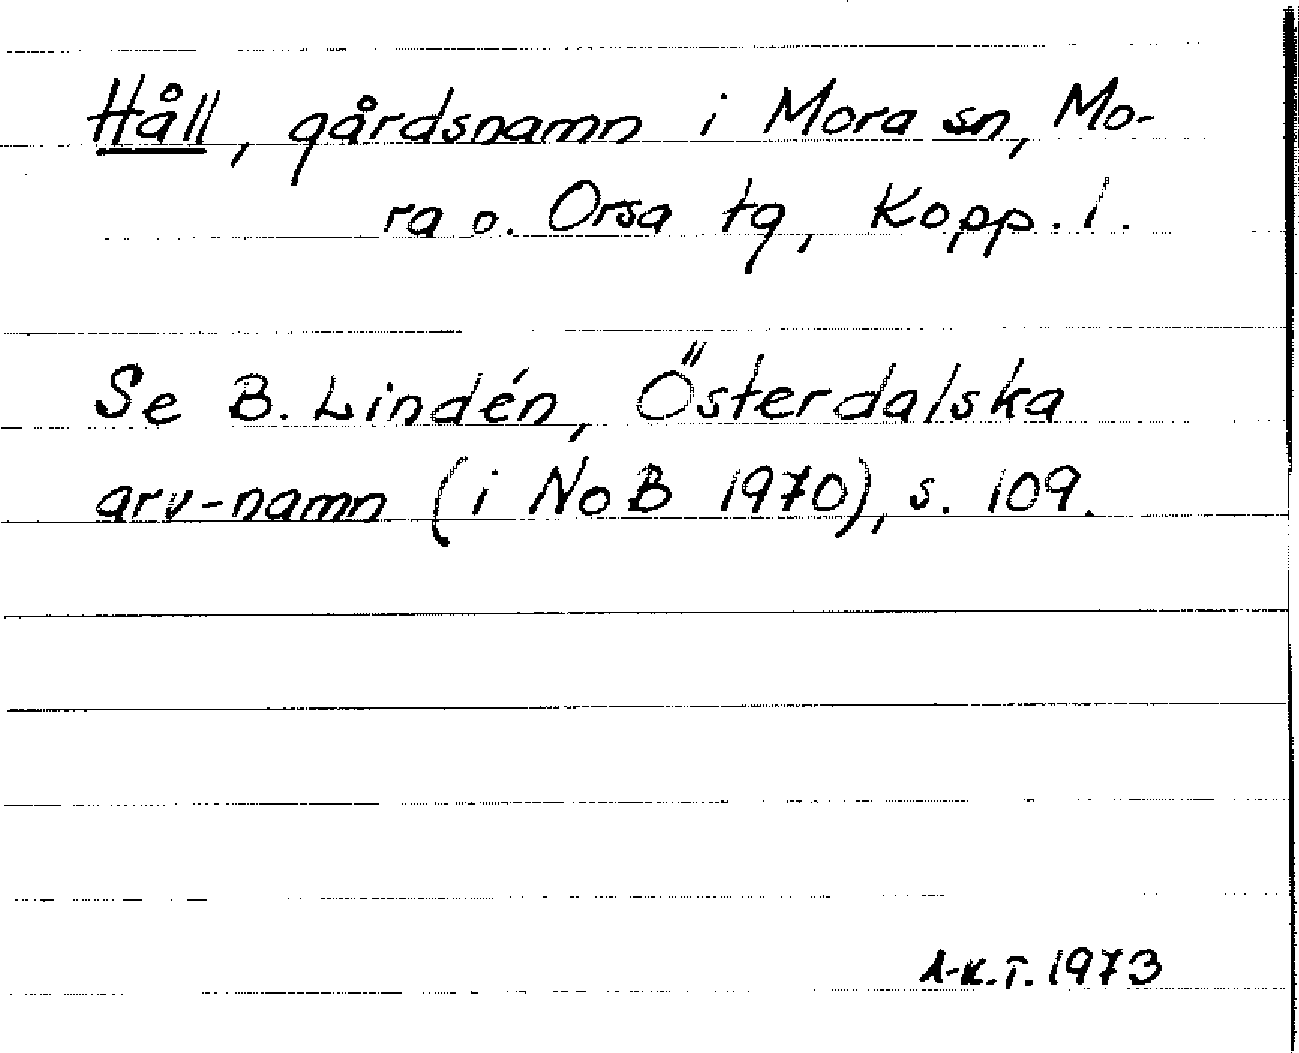 Håll, gårdsnamn i Mora sn, Mo-
ra o. Orsa tg, Kopp. l.
Se B. Lindén, Österdalska
arv-namn (i NoB 1970), s. 109.
A-K.T. 1973